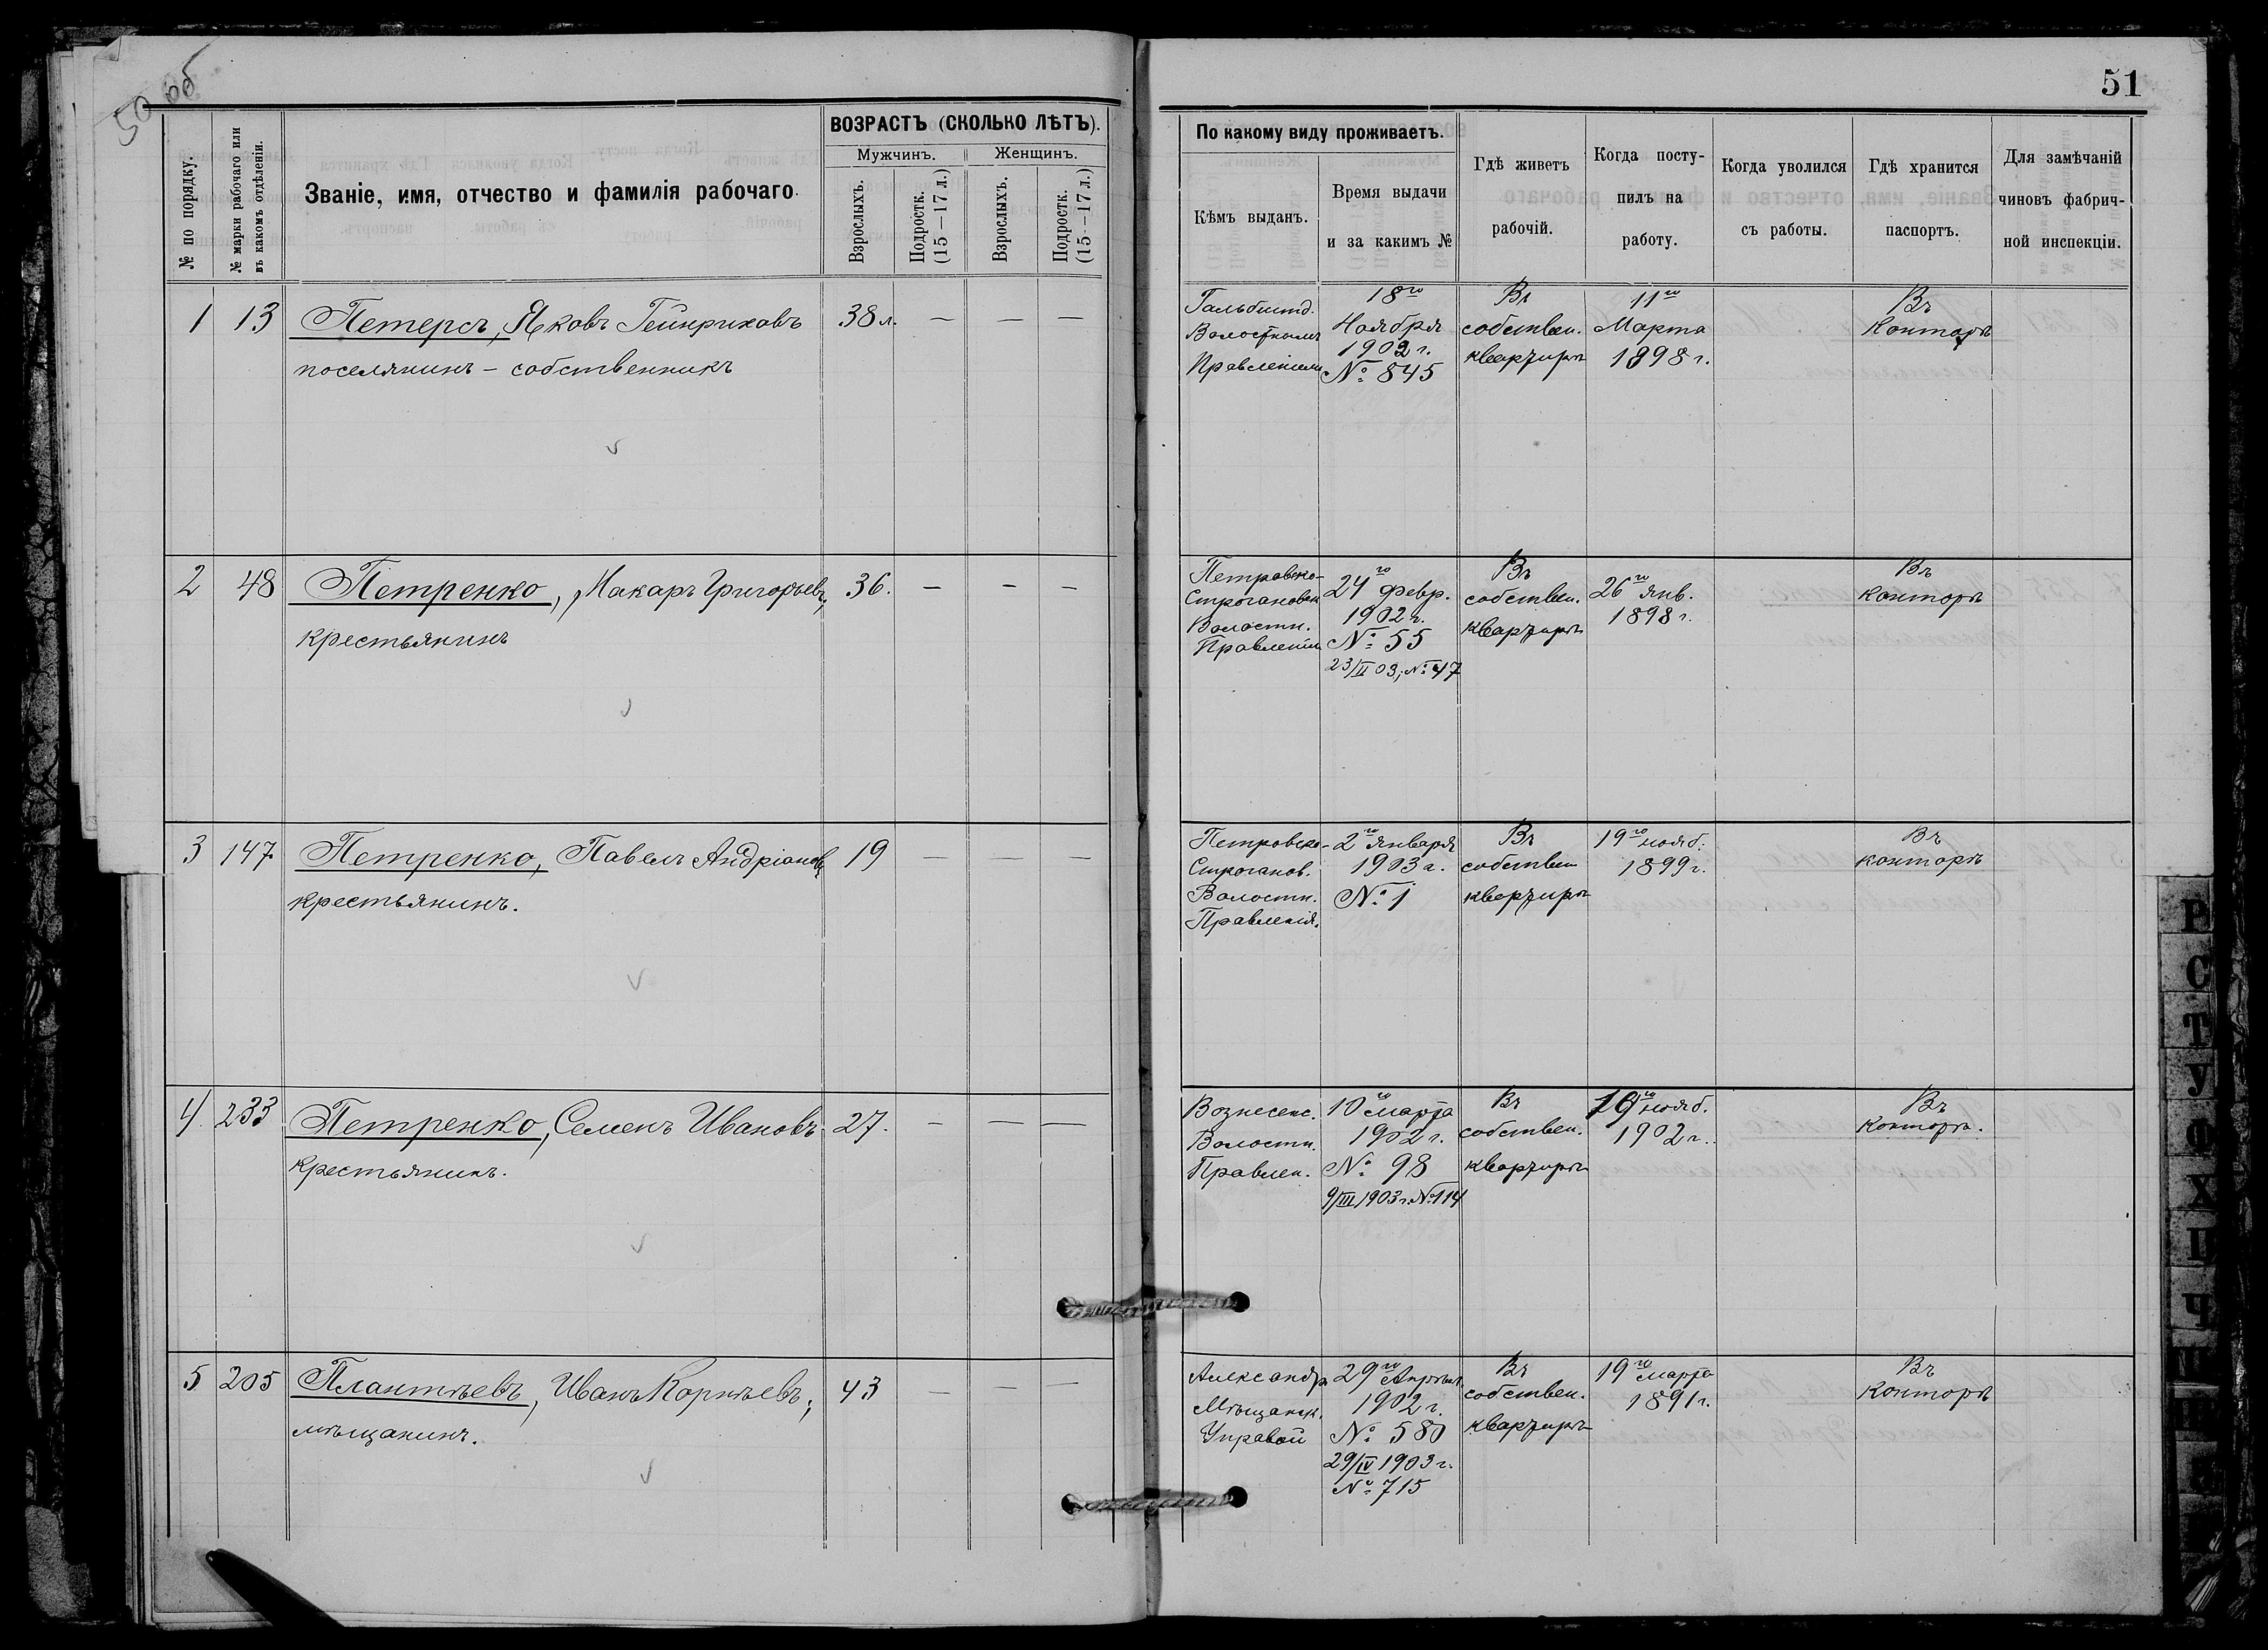 50 об
51
ВОЗРАСТЪ (СКОЛЬКО ЛѢТЪ).
Мужчинъ.
Женщинъ.
№ по порядку.
№ марки рабочаго или
въ какомъ отдѣленіи.
Званіе, имя, отчество и фамилія рабочаго.
Взрослыхъ.
Подростк.
(15—17 л.)
Взрослыхъ.
Подростк.
(15—17 л.)
По какому виду проживаетъ.
Кѣмъ выданъ.
Время выдачи
и за какимъ №
Гдѣ живетъ
рабочій.
Когда посту-
пилъ на
работу.
Когда уволился
съ работы.
Гдѣ хранится
паспортъ.
Для замѣчаній
чиновъ фабрич-
ной инспекціи.
1 13 Петерсъ, Яковъ Гейнриховъ 38 л. — — —
поселянинъ – собственникъ
Гальбштд.
Волостнымъ
Правленіемъ
18го
Ноября
1902 г.
№ 845
Въ
собствен.
квартирѣ
11го
Марта
1898 г.
Въ
Конторѣ
2 48 Петренко, Макаръ Григорьевъ, 36. — — —
крестьянинъ
Петровско-
Строгановск
Волостн.
Правленіи
24го Февр.
1902 г.
№ 55
23/II 03; № 47
Въ
собствен.
квартирѣ
26го Янв.
1898 г.
Въ
Конторѣ
3 147 Петренко, Павелъ Андріановъ 19 — — —
крестьянинъ.
Петровско-
Строганов.
Волостн.
Правленія.
2го Января
1903 г.
№ 1
Въ
собствен
квартирѣ
19го нояб.
1899 г.
Въ
конторѣ
4. 233 Петренко, Семенъ Ивановъ 27. — — —
крестьянинъ.
Вознесенс.
Волостн.
Правлен.
10го марта
1902 г.
№ 98
9/III 1903 г. № 114
Въ
собствен.
квартирѣ
нояб.
1902 г.
Въ
Конторѣ.
5 205 Плантѣевъ, Иванъ Корнѣевъ; 43 — — —
мѣщанинъ.
Александр
Мѣщанск.
Управой
29го Апрѣля
1902 г.
№ 580
29/IV 1903 г.
№ 715
Въ
собствен.
квартирѣ
19го марта
1891 г.
Въ
Конторѣ
Р
С
Т
У
Ф
Х
Ц
Ч